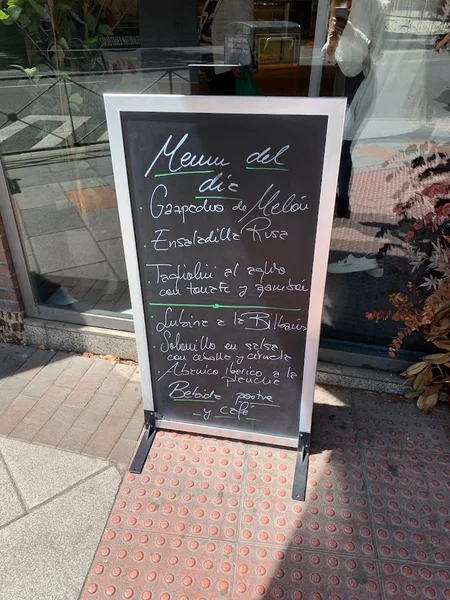 Menu del
dia
· Gazpacho de Melón
· Ensaladilla Rusa
· Tagliolini al
con tomate y gambón
· Lubina a la Bilbaina
· Solomillo en salsa
con cebolla y ciruela
· Abanico iberico a la
plancha
Bebida postre
y café